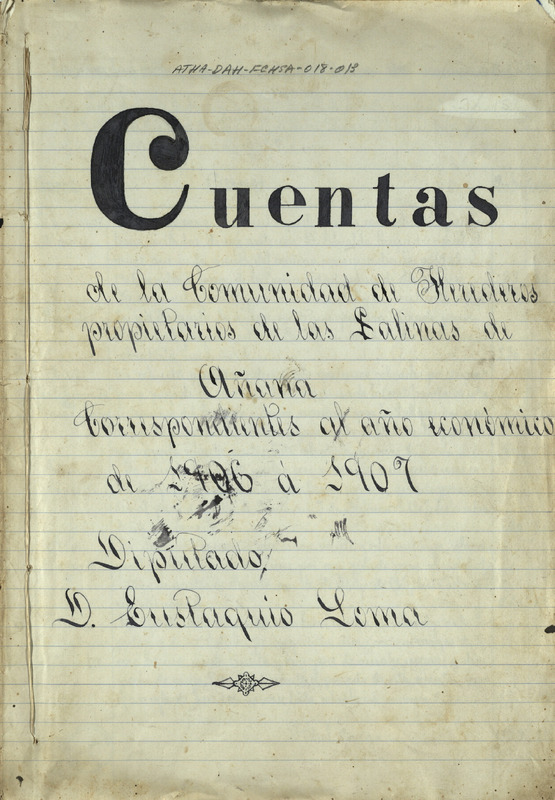 ATHA-DAH-FCHSA-018-013
Cuentas
de la Comunidad de Herederos
propietarios de las Salinas de
Añana
Correspondientes al año económico
de 1906 á 1907
Diputado,
D. Eustaquio Loma